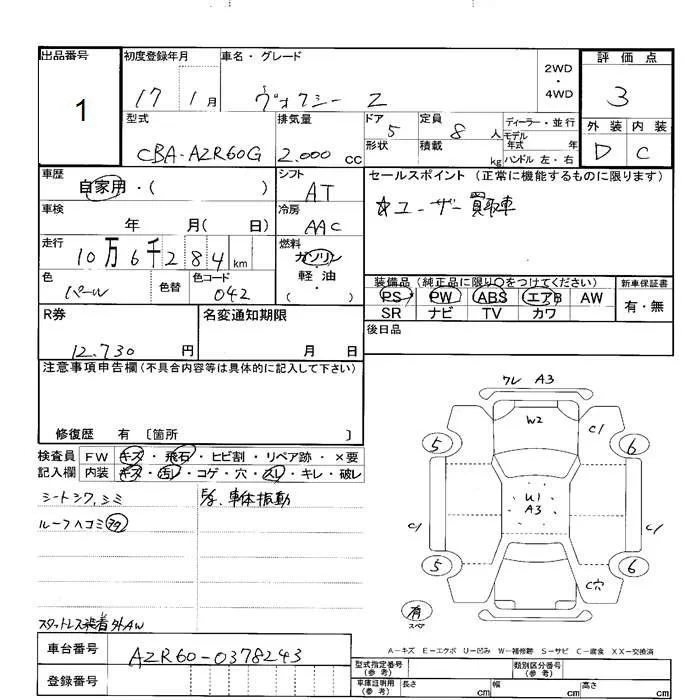 出品番号
1
初度登録年月
17 1月
車名・グレード
ヴォクシー Z
2WD
・
4WD
評価点
3
型式
CBA-AZR60G
排気量
2.000 cc
ドア 5
形状
定員 8 人
積載 kg
ディーラー・並行
モデル
年式 年
ハンドル 左・右
外装 内装
D C
車歴
自家用・( )
シフト
AT
セールスポイント (正常に機能するものに限ります)
☆ユーザー買取車
車検
年 月( 日)
冷房
AAC
走行
10万6千284km
燃料
ガソリン
軽・油
( )
色
パール
色替
色コード
042
装備品 (純正品に限り○をつけてください)
PS PW ABS エアB AW
SR ナビ TV カワ
新車保証書
有・無
R券
12.730 円
名変通知期限
月 日
後日品
注意事項申告欄(不具合内容等は具体的に記入して下さい)
修復歴 有 〔箇所 〕
検査員
記入欄
FW キズ・飛石・ヒビ割・リペア跡・×要
内装 キズ・汚レ・コゲ・穴・スレ・キレ・破レ
シートシワ、シミ
E/g、車体振動
ルーフヘコミ
スタットレス装着 外AW
ワレ A3
W2
C1
5
6
U1
A3
C1
C1
5
6
C穴
有
スペア
A-キズ E-エクボ U-凹み W-補修跡 S-サビ C-腐食 XX-交換済
車台番号
AZR60-0378243
登録番号
型式指定番号
(参考)
類別区分番号
(参考)
車庫証明用
(参考)
長さ cm 幅 cm 高さ cm